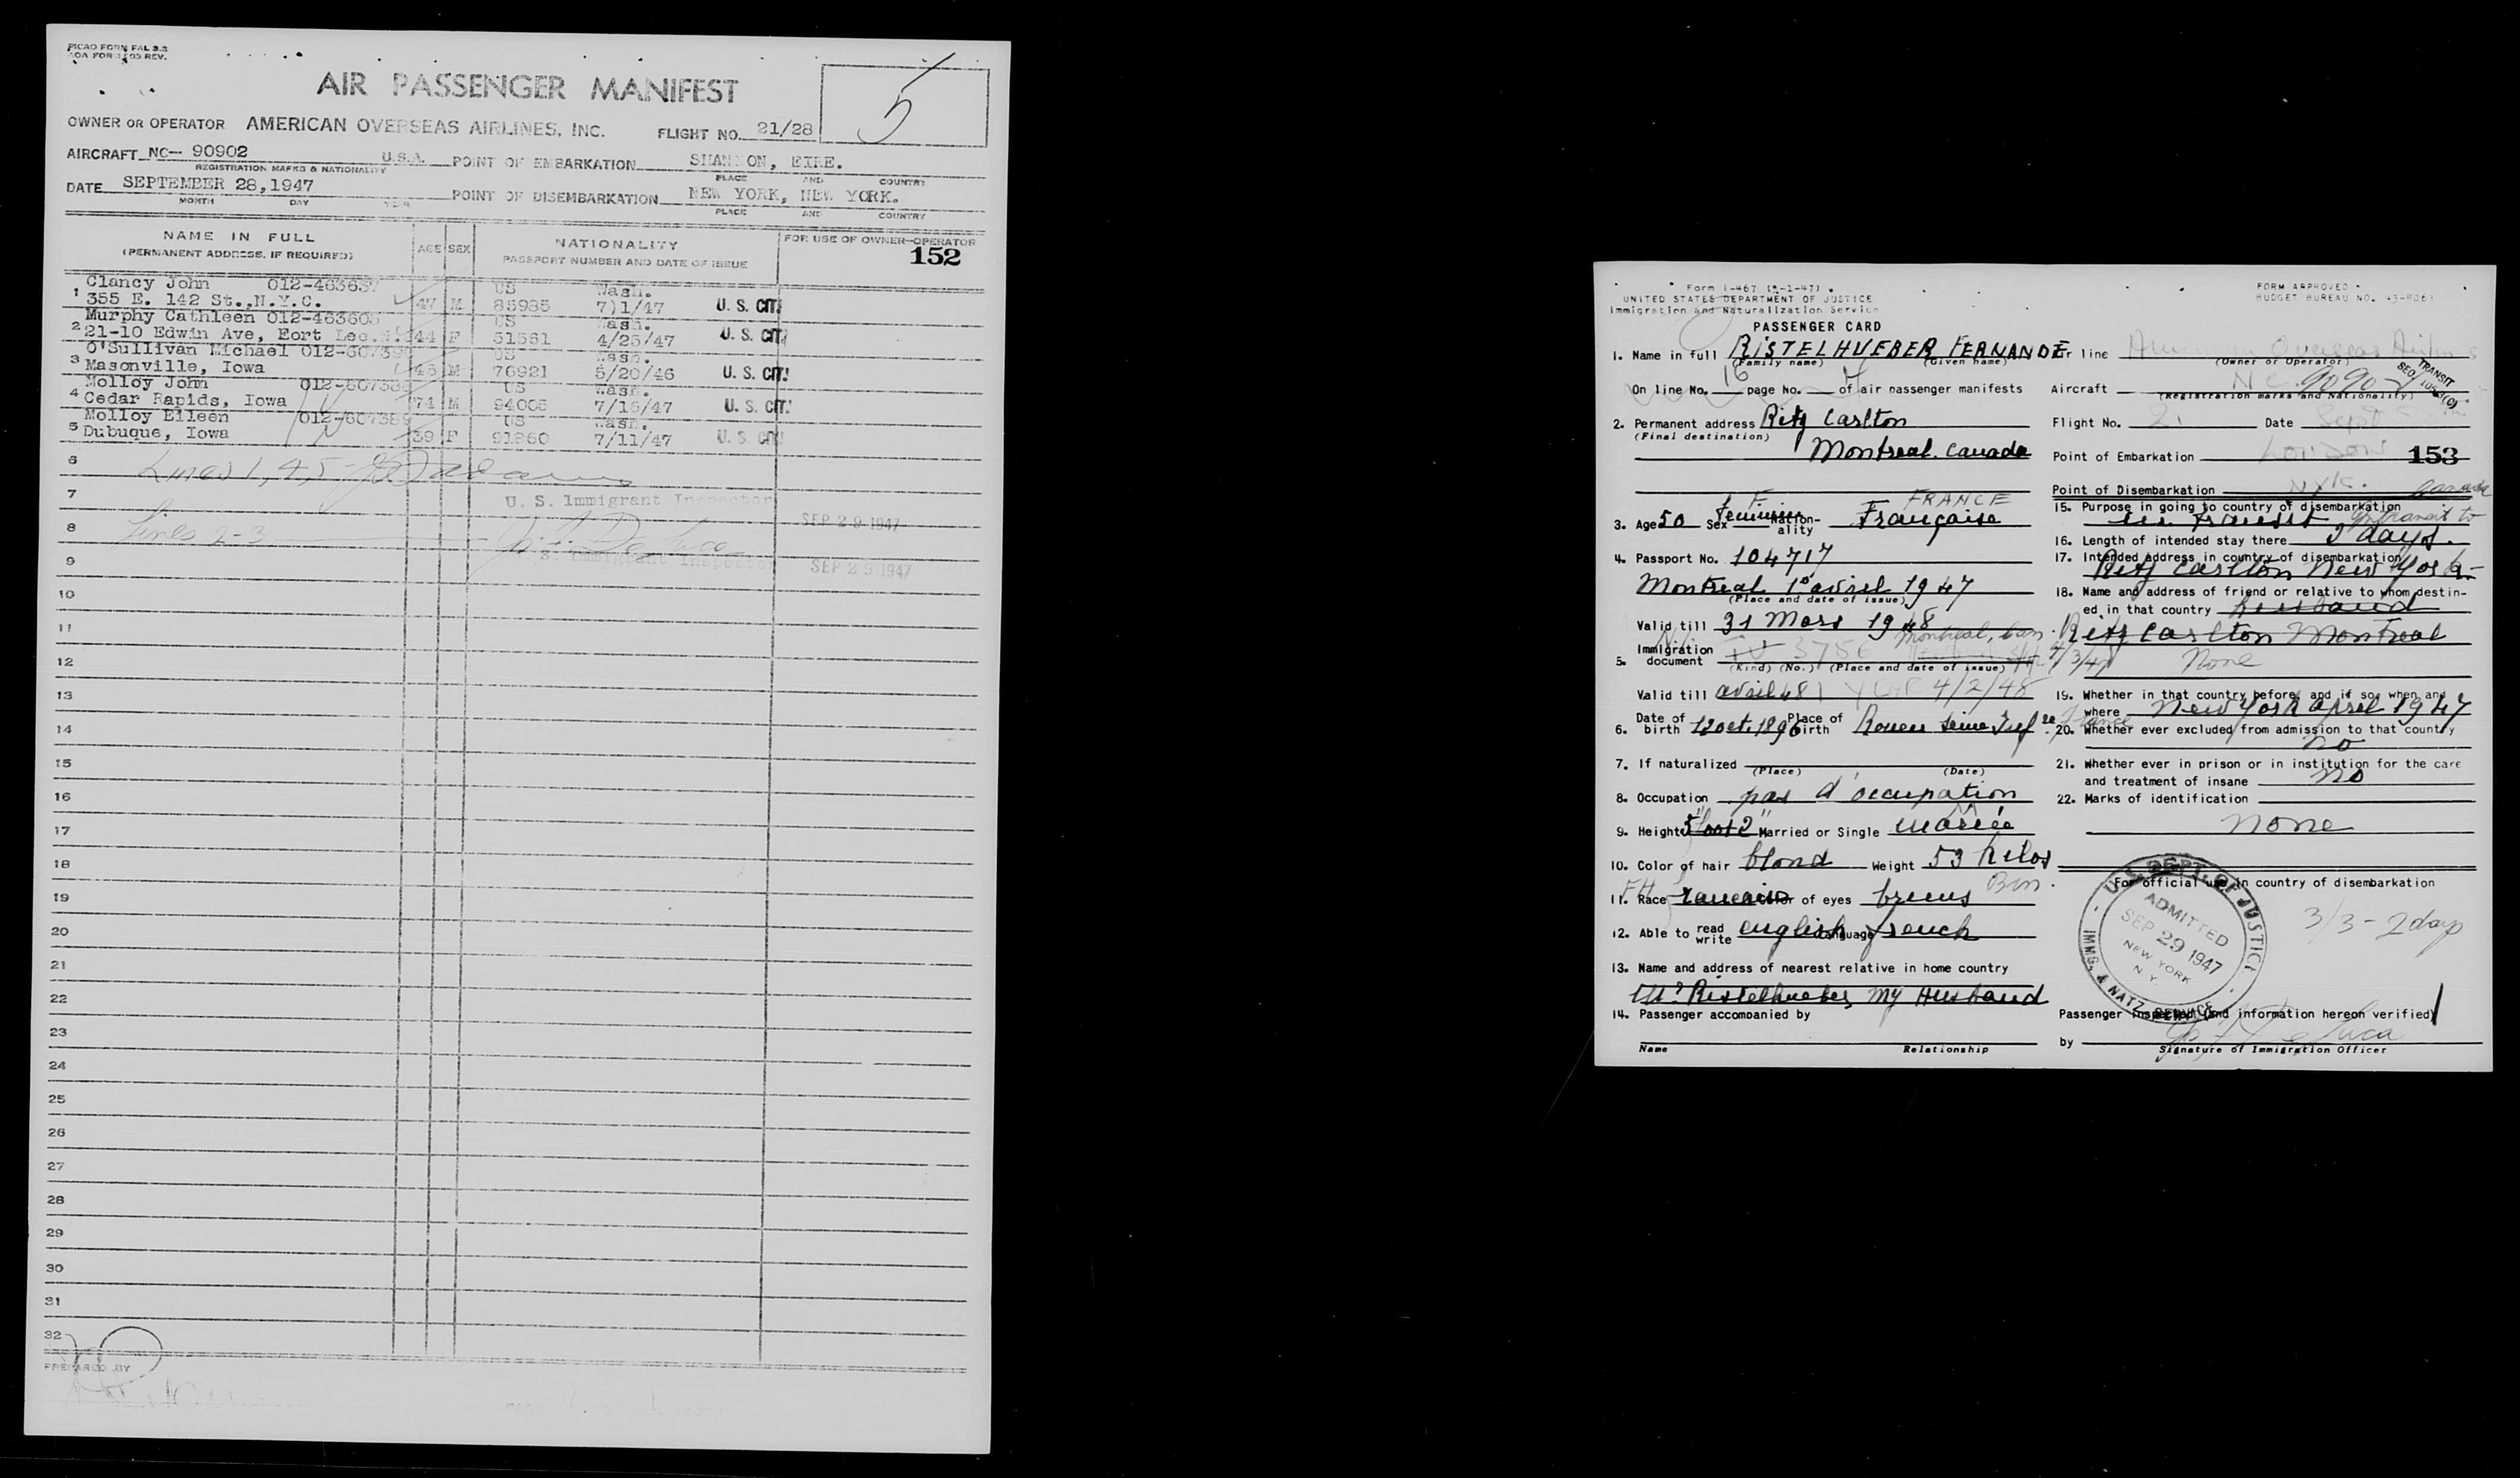 PICAO FORM FAL 3.3
AOA FORM 1105 REV.
AIR PASSENGER MANIFEST
5
OWNER OR OPERATOR AMERICAN OVERSEAS AIRLINES, INC. FLIGHT NO. 21/28
AIRCRAFT NC- 90902 U.S.A. POINT OF EMBARKATION SHANNON, EIRE.
REGISTRATION MARKS & NATIONALITY PLACE AND COUNTRY
DATE SEPTEMBER 28,1947 POINT OF DISEMBARKATION NEW YORK, NEW YORK.
MONTH DAY YEAR PLACE AND COUNTRY
NAME IN FULL
(PERMANENT ADDRESS, IF REQUIRED)
AGE SEX
NATIONALITY
PASSPORT NUMBER AND DATE OF ISSUE
FOR USE OF OWNER-OPERATOR
152
Clancy John 012-463637 US Wash.
1 355 E. 142 St.,N.Y.C. 47 M 85935 7)1/47 U. S. CIT.
Murphy Cathleen US Wash.
2 21-10 Edwin Ave, Fort Lee.N. 44 F 51561 4/25/47 U. S. CIT.
O'Sullivan Michael US Wash.
3 Masonville, Iowa 45 M 76921 5/20/46 U. S. CIT.
Molloy John US Wash.
4 Cedar Rapids, Iowa 74 M 94005 7/16/47 U. S. CIT.
Molloy Eileen 012-607389 US Wash.
5 Dubuque, Iowa 39 F 91860 7/11/47 U. S. CIT
6 Lines 1, 4, 5 -
7 U. S. Immigrant Inspector SEP 29 1947
8 Lines 2-3
9 U. S. Immigrant Inspector SEP 29 1947
10
11
12
13
14
15
16
17
18
19
20
21
22
23
24
25
26
27
28
29
30
31
32
PREPARED BY
Form I-467
UNITED STATES DEPARTMENT OF JUSTICE
Immigration and Naturalization Service
FORM APPROVED
BUDGET BUREAU NO. 43-R061
PASSENGER CARD
1. Name in full RISTELHUEBER FERNANDE
(Family name) (Given name)
On line No. 16 page No. 4 of air passenger manifests
2. Permanent address Ritz Carlton
(Final destination)
Montreal. Canada
F FRANCE
3. Age 50 Sex feminin Nationality Française
4. Passport No. 104717
Montreal 1º avril 1947
(Place and date of issue)
Valid till 31 Mars 1948
Montreal, Can.
5. Immigration document 3756 4/3/47
(Kind) (No.) (Place and date of issue)
Valid till avril 48 1 YEAR 4/2/48
6. Date of birth 12 oct. 1896 Place of birth Rouen Seine Infre France
7. If naturalized
(Place) (Date)
8. Occupation pas d'occupation
9. Height 5 foot 2" Married or Single mariée M
10. Color of hair blond Weight 53 kilos
11. Race francaise Color of eyes bruns Brn.
12. Able to read write english Language french
13. Name and address of nearest relative in home country
Mr Ristelhueber my Husband
14. Passenger accompanied by
Name Relationship
Air line American Overseas Airlines
(Owner or Operator)
Aircraft NC 90902
(Registration marks and Nationality)
TRANSIT
Flight No. Date Sept
Point of Embarkation London
153
Point of Disembarkation N.Y.C.
15. Purpose in going to country of disembarkation
in transit In transit to Canada
16. Length of intended stay there 2 days.
17. Intended address in country of disembarkation
Ritz Carlton New York
18. Name and address of friend or relative to whom destin-
ed in that country husband
Ritz Carlton Montreal
None
19. Whether in that country before, and if so, when and
where New York april 1947
20. Whether ever excluded from admission to that country
no
21. Whether ever in prison or in institution for the care
and treatment of insane no
22. Marks of identification
none
For official use in country of disembarkation
3/3 - 2 days
U. S. DEPT. OF JUSTICE
ADMITTED
SEP 29 1947
NEW YORK
N Y
IMMG. & NATZ SERVICE
Passenger inspected (and information hereon verified)
by
Signature of Immigration Officer